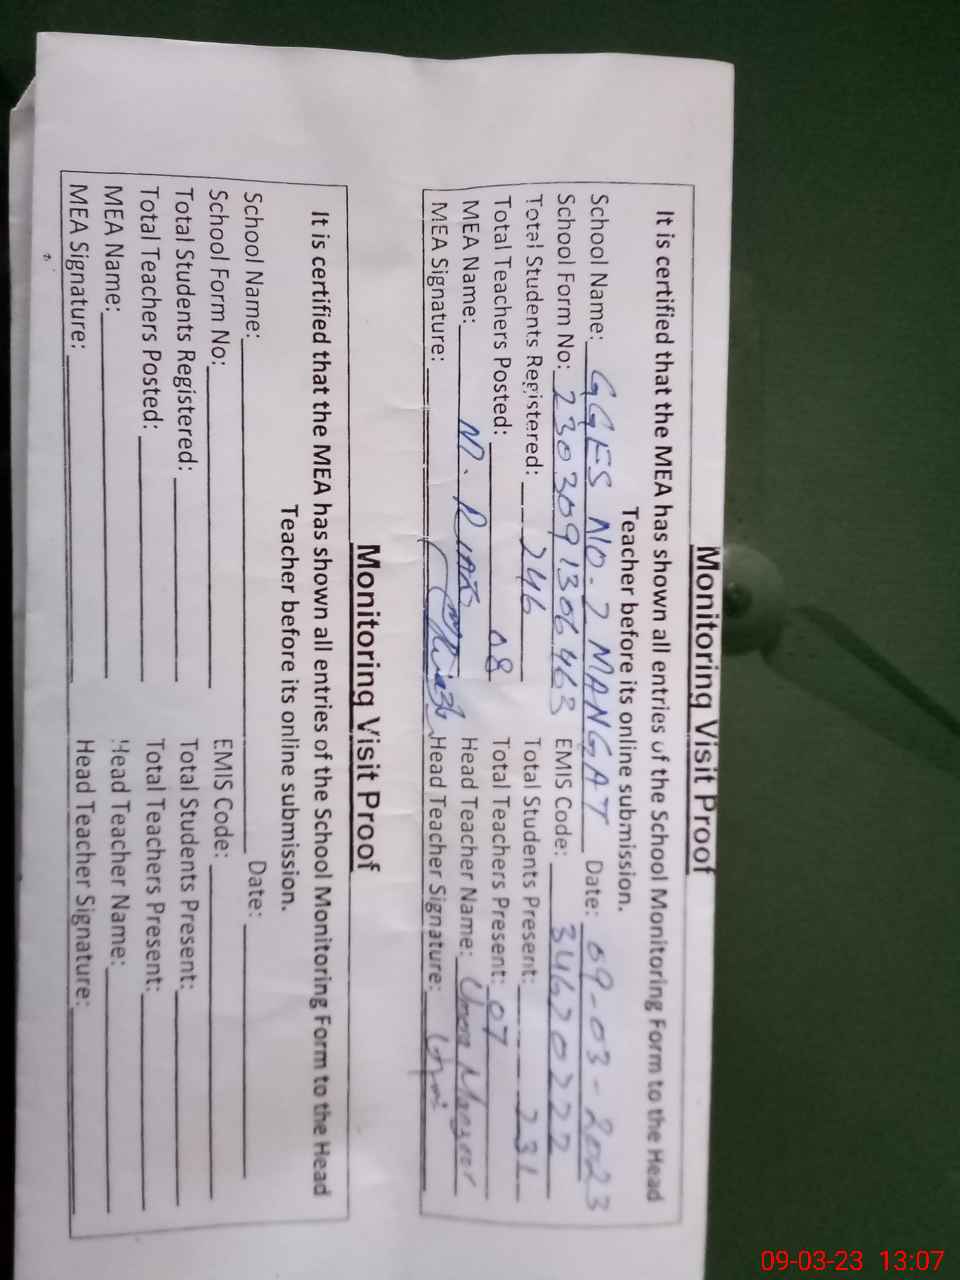 Monitoring Visit Proof
It is certified that the MEA has shown all entries of the School Monitoring Form to the Head
Teacher before its online submission.
School Name: GGES NO. 2 MANGAT Date: 09-03-2023
School Form No: 2303091306463 EMIS Code: 34620222
Total Students Registered: 246 Total Students Present: 231
Total Teachers Posted: 08 Total Teachers Present: 07
MEA Name: M. RIAZ Head Teacher Name:
MEA Signature: Head Teacher Signature:
Monitoring Visit Proof
It is certified that the MEA has shown all entries of the School Monitoring Form to the Head
Teacher before its online submission.
School Name: Date:
School Form No: EMIS Code:
Total Students Registered: Total Students Present:
Total Teachers Posted: Total Teachers Present:
MEA Name: Head Teacher Name:
MEA Signature: Head Teacher Signature:
09-03-23 13:07